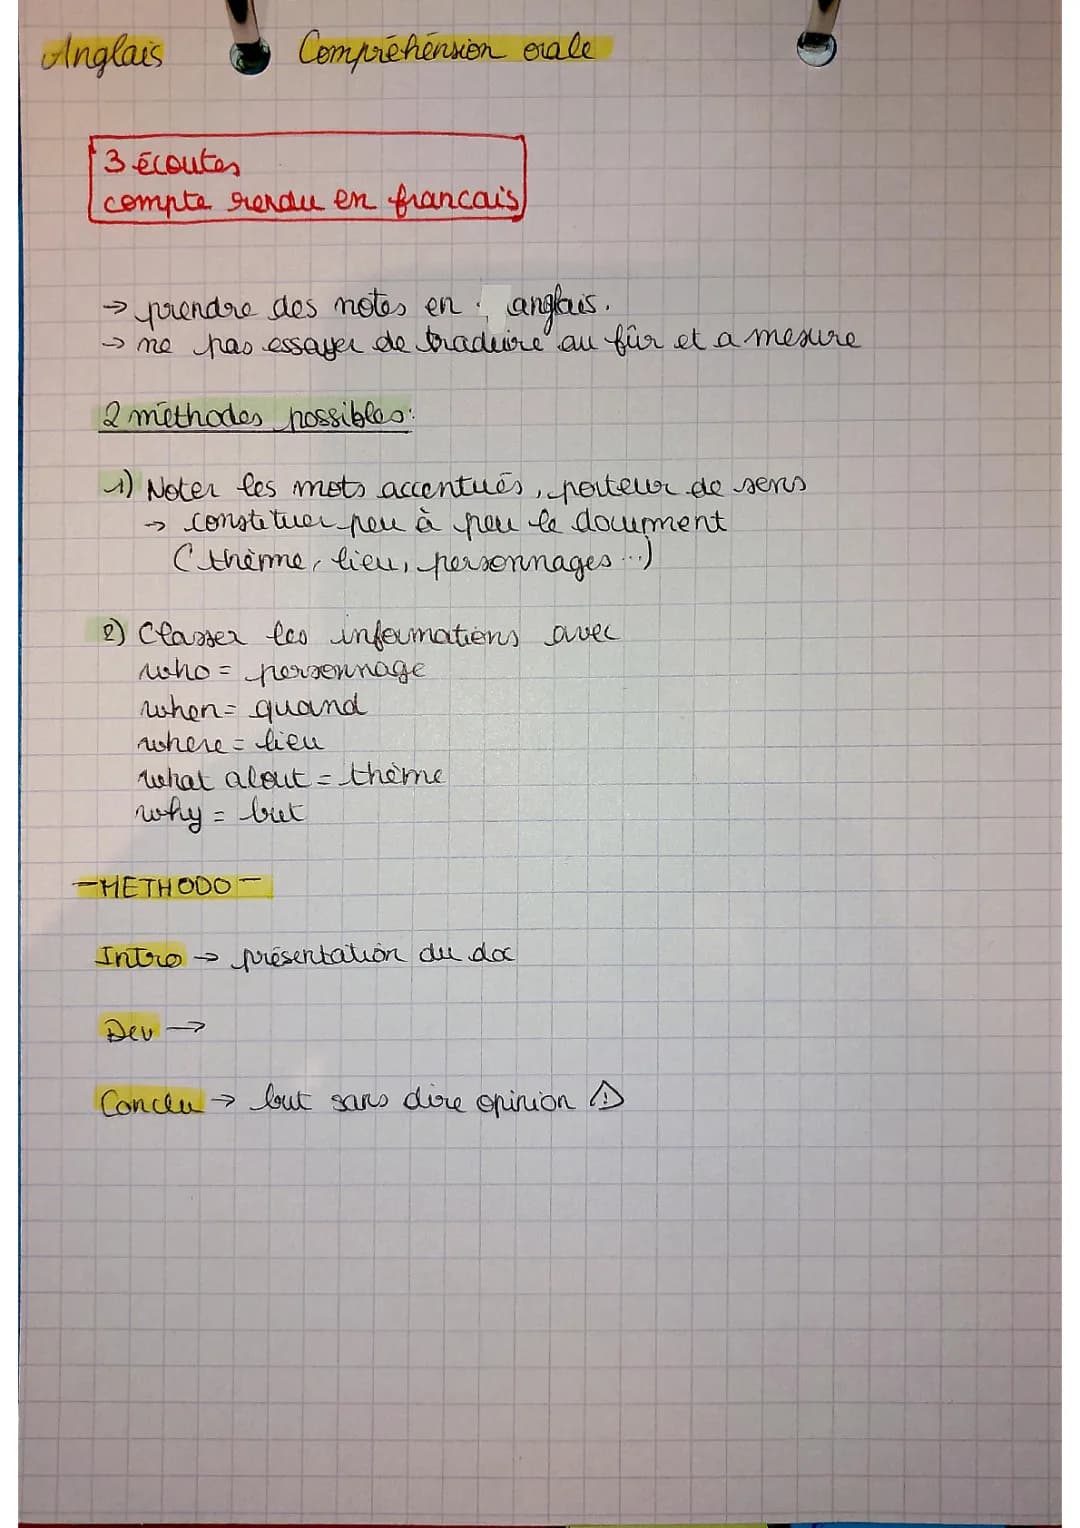 Anglais Compréhension orale
3 écoutes
compte rendu en francais
→ prendre des notes en anglais.
→ ne pas essayer de traduire au fûr et a mesure
2 méthodes possibles:
1) Noter les mots accentués, porteur de sens
→ constituer peu à peu le document
(thème, lieu, personnages...)
2) Classer les informations avec
who = personnage
when = quand
where = lieu
what about = thème
why = but
- METHODO -
Intro → présentation du doc
Dev →
Conclu → but sans dire opinion ⚠